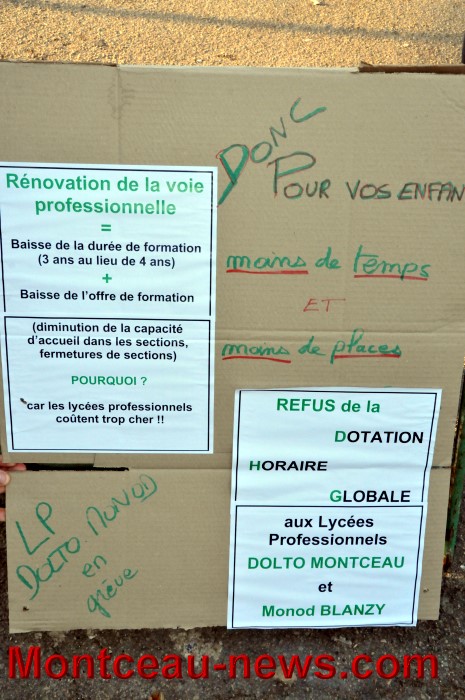 DONC
POUR VOS ENFAN
moins de temps
ET
moins de places
Rénovation de la voie
professionnelle
=
Baisse de la durée de formation
(3 ans au lieu de 4 ans)
+
Baisse de l'offre de formation
(diminution de la capacité
d'accueil dans les sections,
fermetures de sections)
POURQUOI ?
car les lycées professionnels
coûtent trop cher !!
REFUS de la
DOTATION
HORAIRE
GLOBALE
aux Lycées
Professionnels
DOLTO MONTCEAU
et
Monod BLANZY
LP
DOLTO. MONOD
en
grève
Montceau-news.com